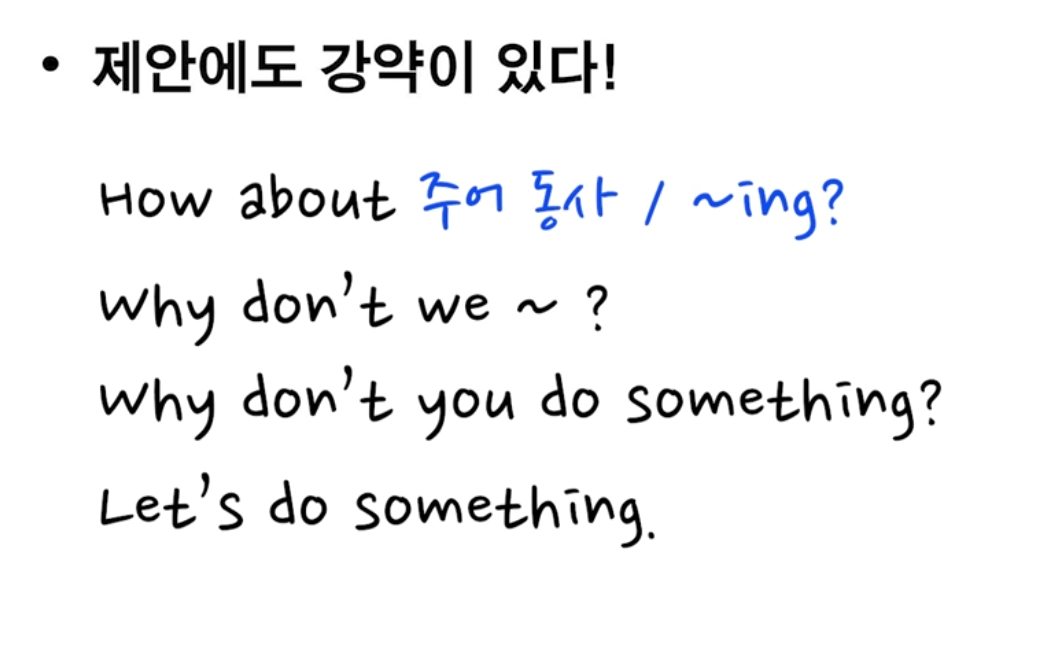 • 제안에도 강약이 있다!
How about 주어 동사 / ~ing?
Why don't we ~ ?
Why don't you do something?
Let's do something.